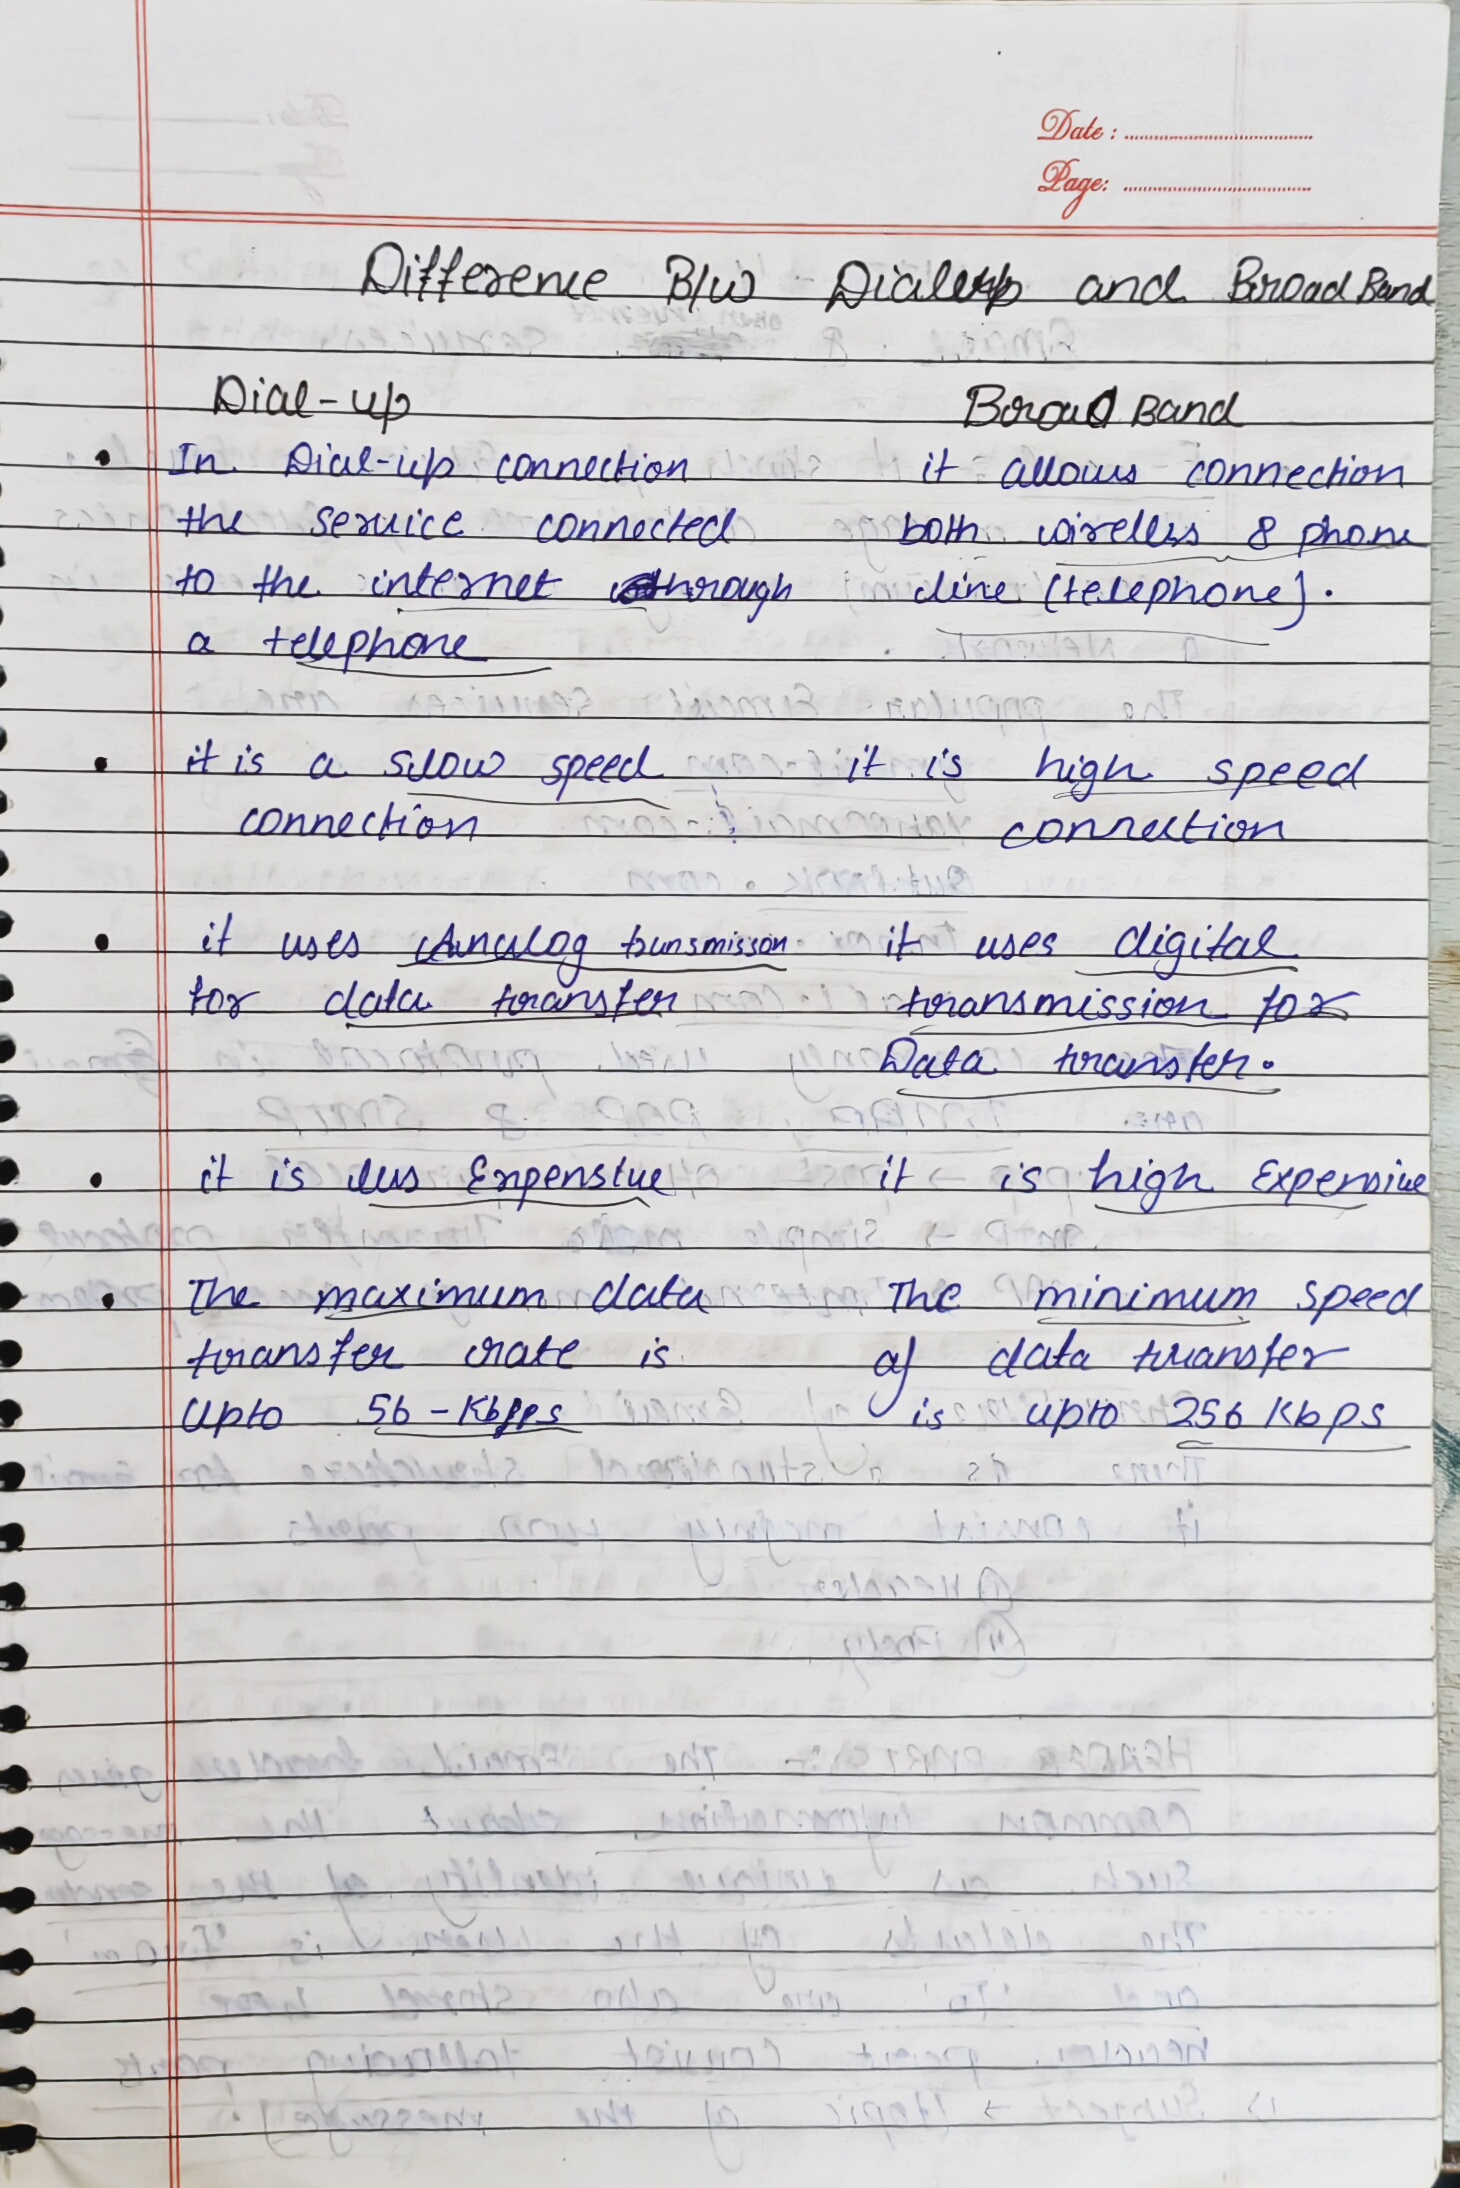 Date :
Page:
Difference B/w Dialup and BroadBand
Dial-up
Broad Band
In Dial-up connection
the service connected
to the internet through
a telephone
it allows connection
both wireless & phone
line (telephone).
it is a slow speed
connection
it is high speed
connection
it uses Analog transmisson
for data transfer
it uses digital
transmission for
Data transfer.
it is less Expensive
it is high Expensive
The maximum data
transfer rate is
Upto 56-Kbpps
The minimum speed
of data transfer
is upto 256 Kbps